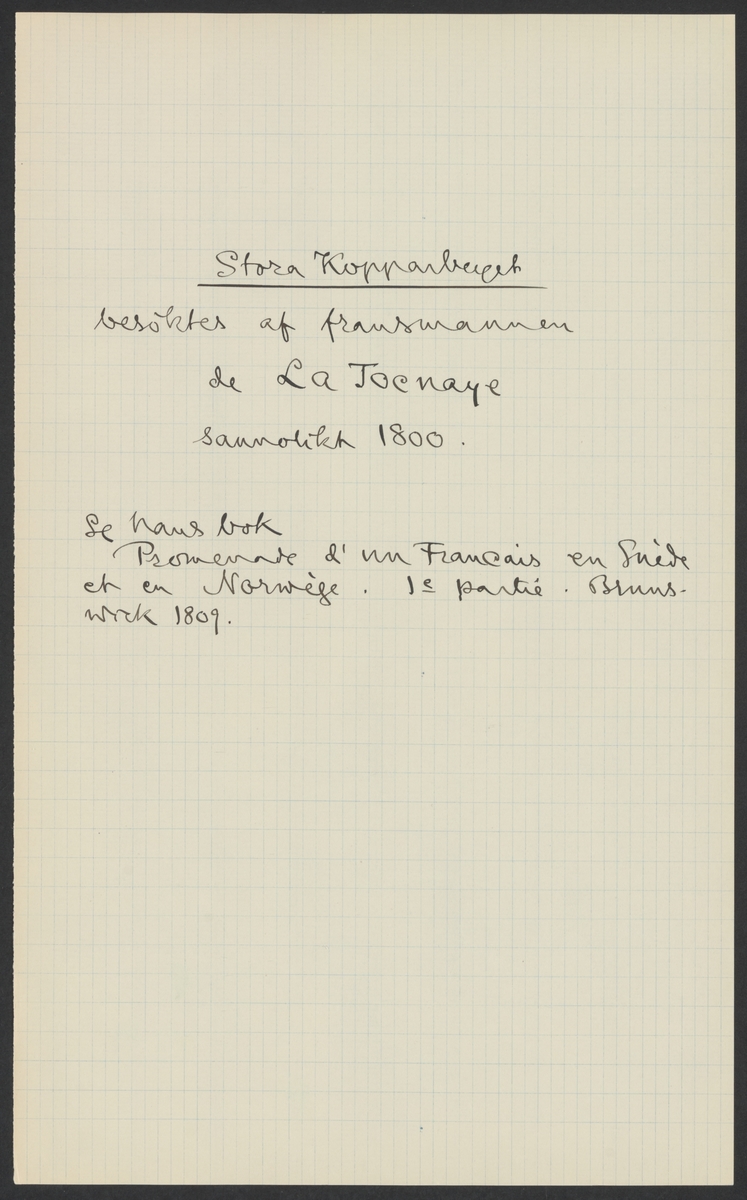 Stora Kopparberget
besöktes af fransmannen
de La Tocnaye
sannolikt 1800.
Se hans bok
Promenade d'un Francais en Suède
et en Norwège. 1e partié. Bruns-
wick 1809.